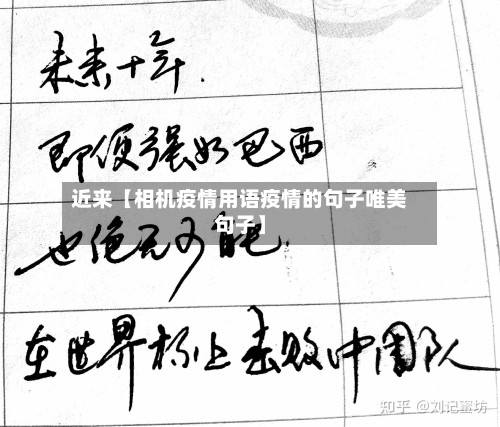 未来十年.
即便强如巴西
近来【相机疫情用语疫情的句子唯美
句子】
也绝无可能.
在世界杯上击败中国队
知乎 @刘记蜜坊